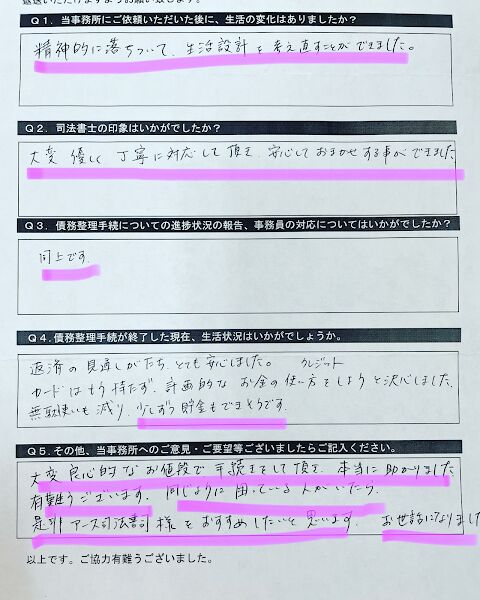 Q1. 当事務所にご依頼いただいた後に、生活の変化はありましたか？
精神的に落ちついて、生活設計を考え直すことができました。
Q2. 司法書士の印象はいかがでしたか？
大変 優しく 丁寧に対応して頂き、安心しておまかせする事ができました
Q3. 債務整理手続についての進捗状況の報告、事務員の対応についてはいかがでしたか？
同上です。
Q4. 債務整理手続が終了した現在、生活状況はいかがでしょうか。
返済の見通しがたち、とても安心しました。 クレジット
カードはもう持たず、計画的な お金の使い方をしようと決心しました。
無駄使いも減り、少しずつ貯金もできそうです。
Q5. その他、当事務所へのご意見・ご要望等ございましたらご記入ください。
大変 良心的な お値段で 手続きをして頂き、本当に助かりました
有難うございます。 同じように困っている人がいたら、
是非 アース司法書司様をおすすめしたいと思います。 お世話になりました
以上です。ご協力有難うございました。